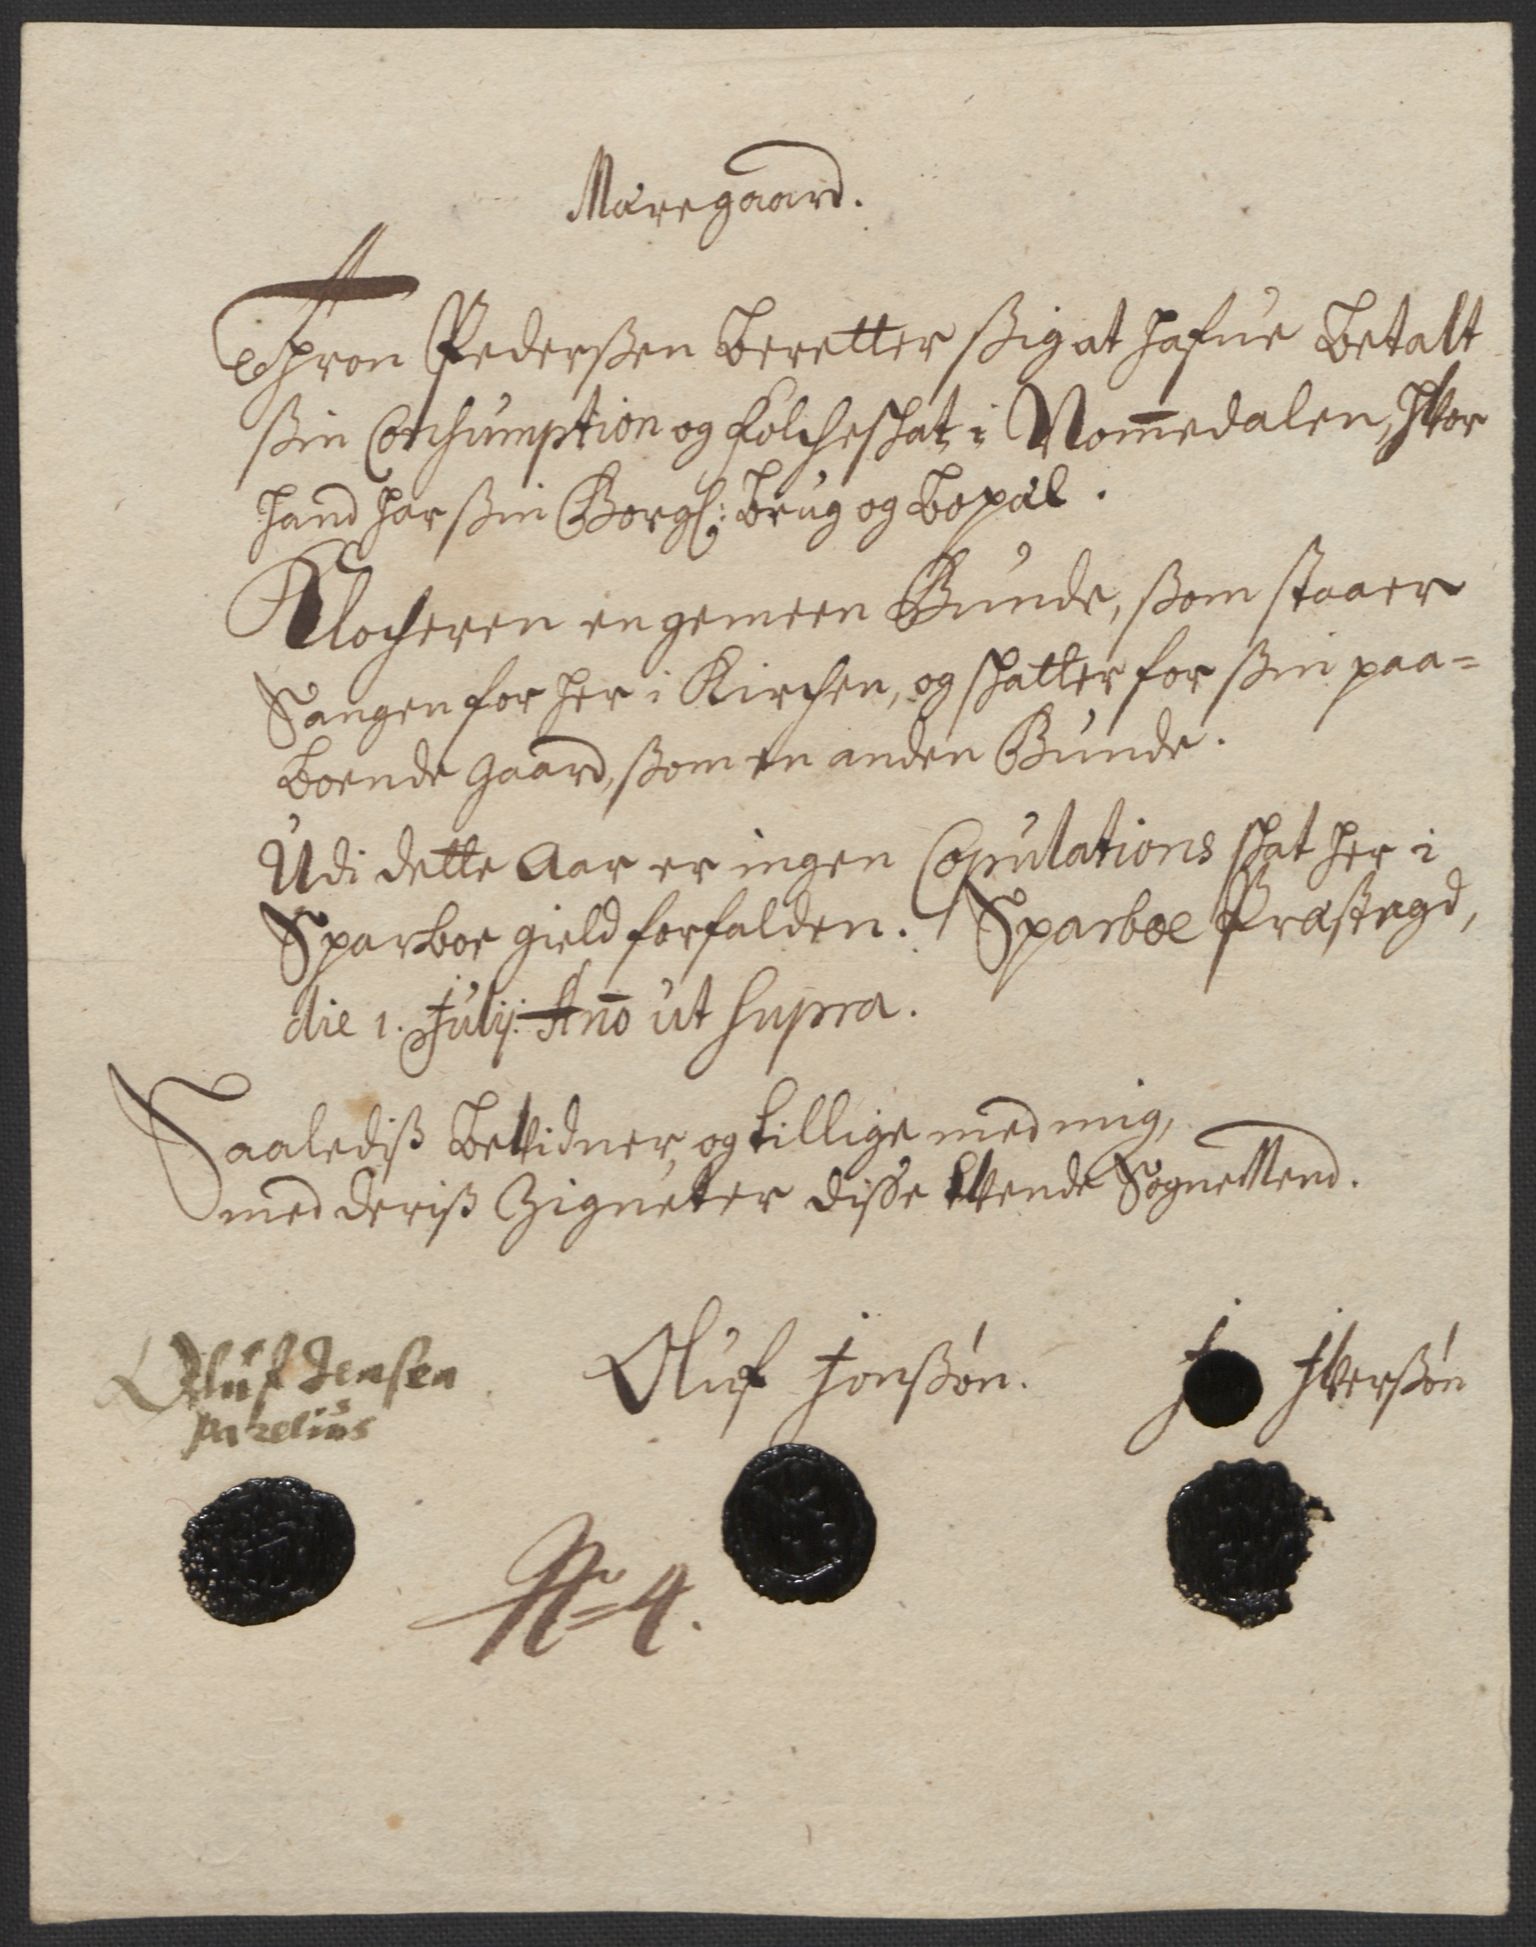 Mæregaard.
Thron Pederßen beretter ßig at hafue betalt
ßin Conhumption og Folcheskat i Nom̅edalen, hvor
hand har ßin Borgl: brug og bopæl.
Klocheren en gemeen Bunde, ßom staaer
Sangen for her i Kirchen, og skatter for ßin paa=
boende gaard, ßom en anden Bunde.
Udi dette Aar er ingen Copulations skat her i
Sparboe gield forfalden. Sparboe Præstegd,
die 1. Julij: An̅o ut supra.
Saalediß bevidner, og tillige med mig,
med deriß Zigneter disse tvende SogneMend.
Oluf Jensen
Parelius
Oluf Jonßøn.
Iverßøn
No 4.